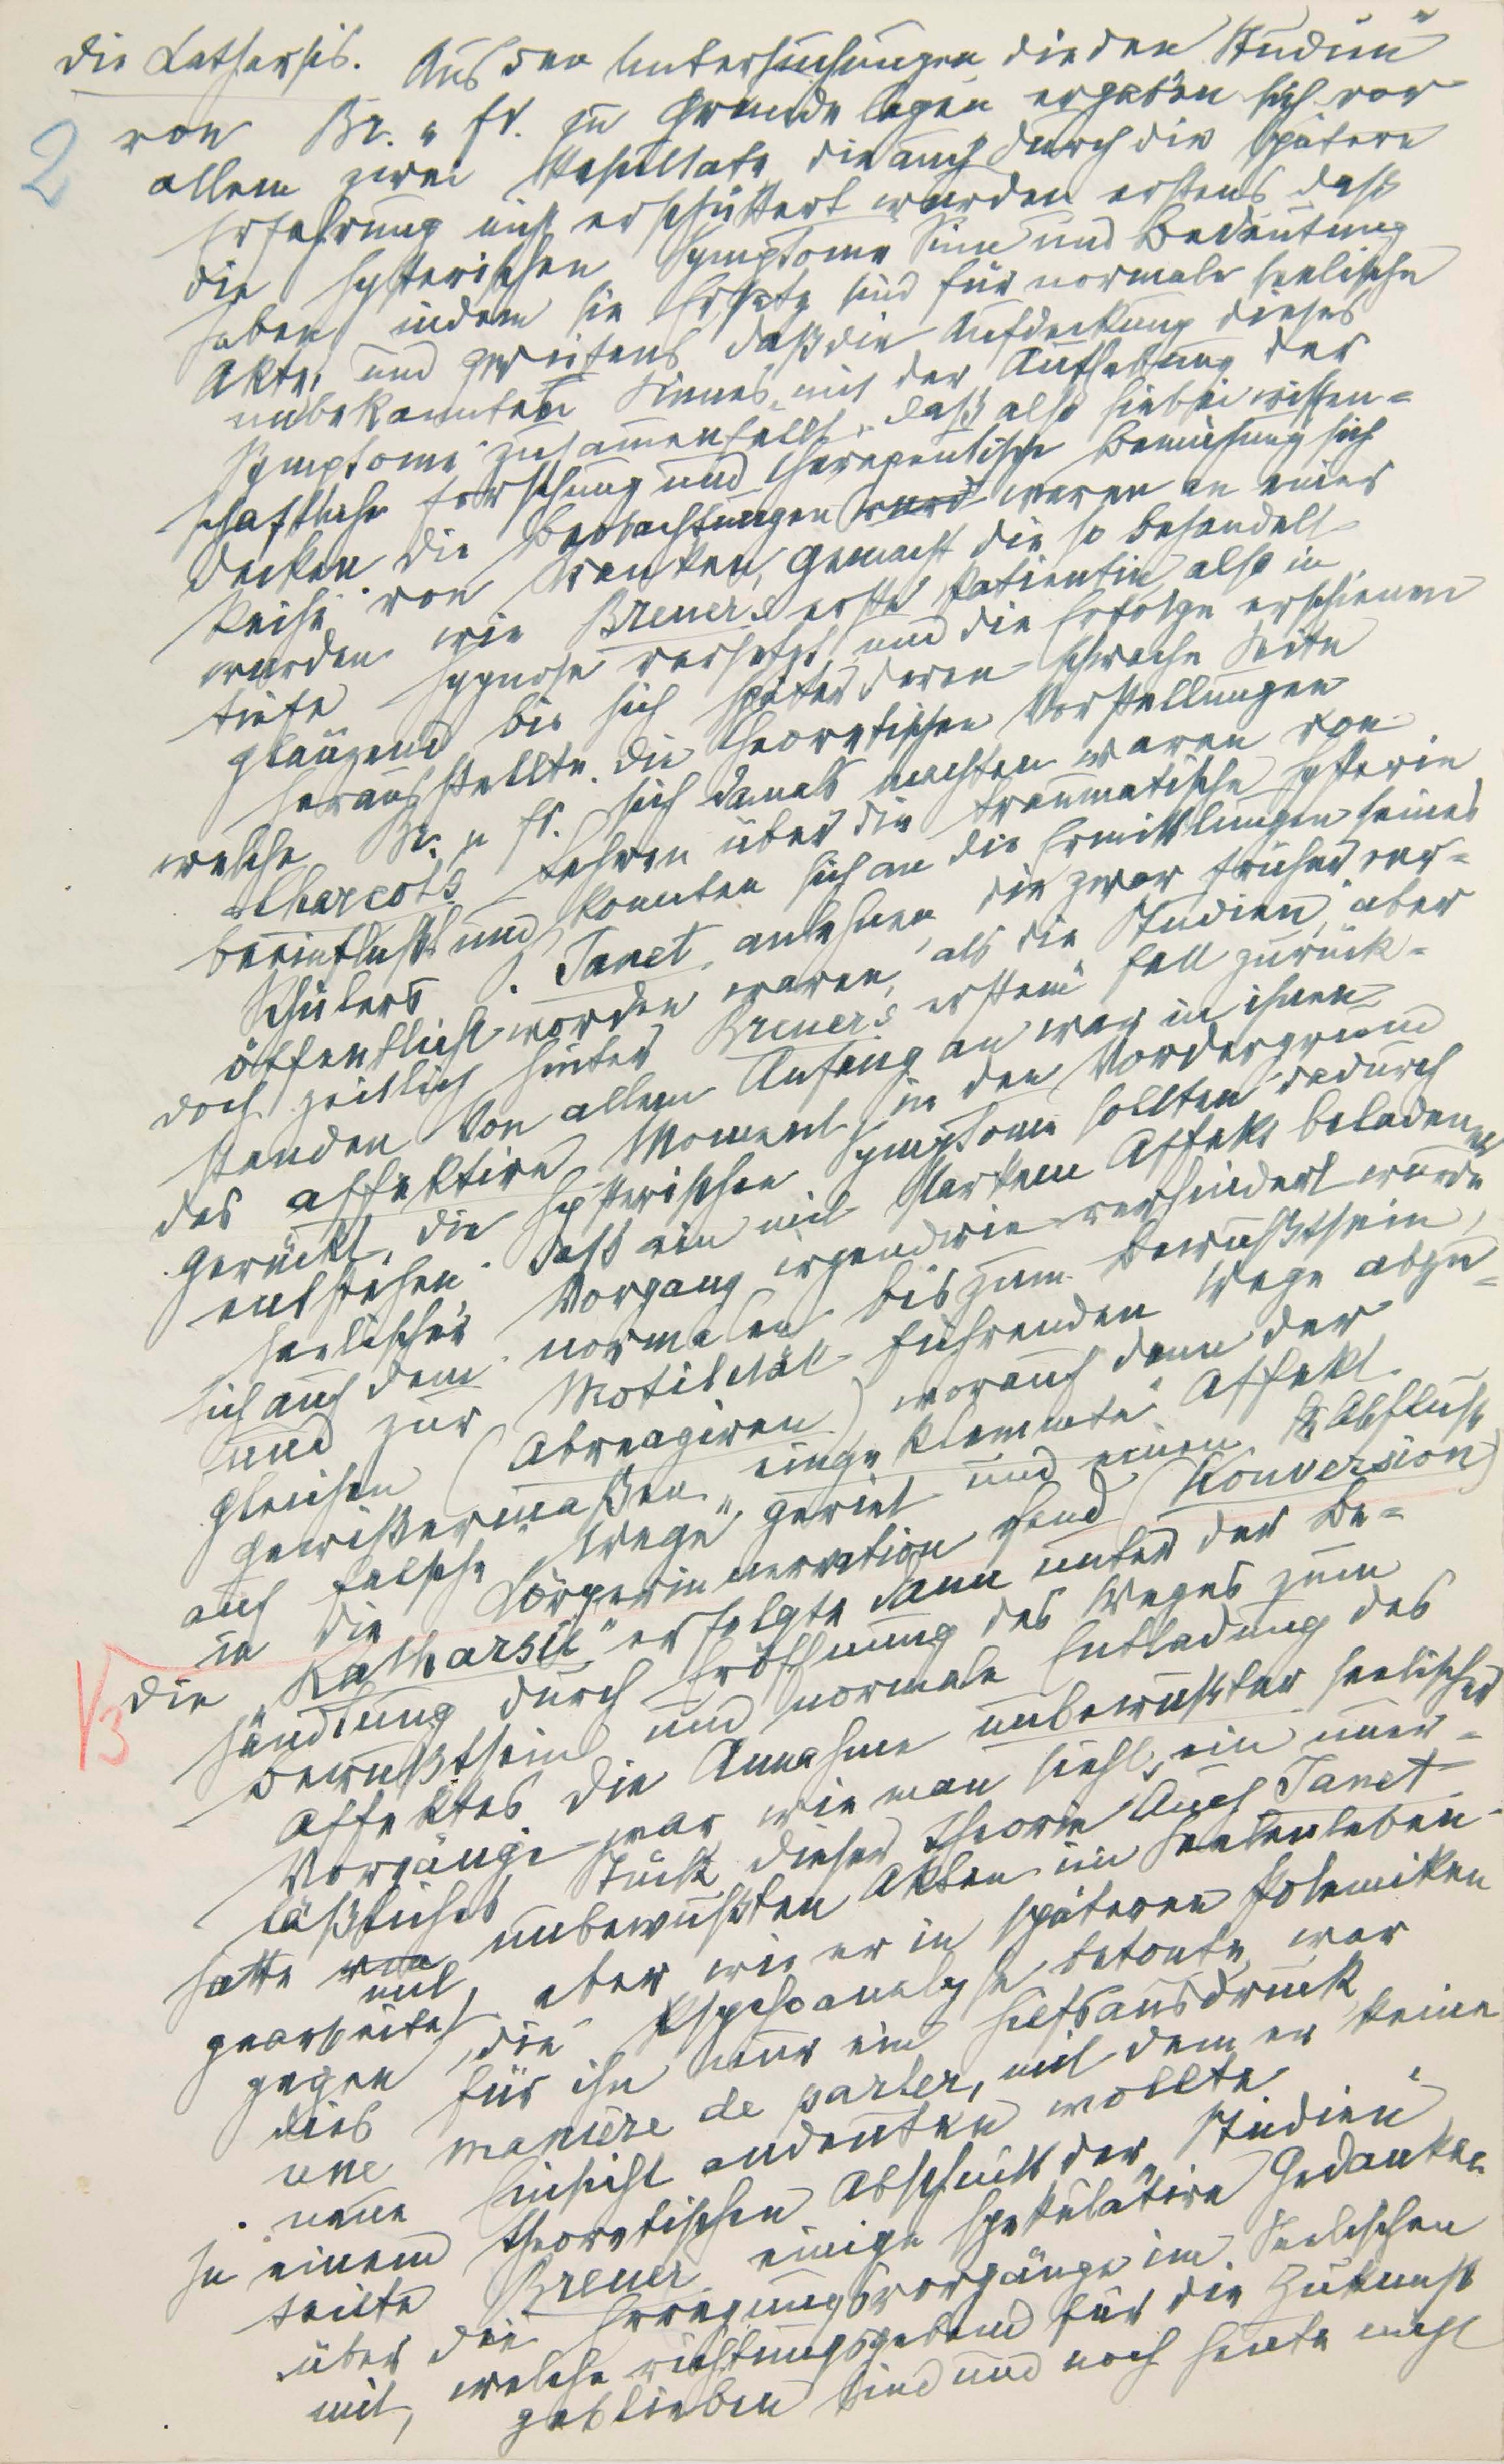 Die Katharsis. Aus den Untersuchungen die den Studien"
2
von Br. u Fr. zu Grunde lagen ergaben sich vor
allem zwei Resultate die auch durch die spätere
Erfahrung nicht erschüttert wurden erstens daß
die hysterischen Symptome Sinn und Bedeutung
haben indem sie Ersatz sind für normale seelische
Akte; und zweitens daß die Aufdeckung dieses
unbekannten Sinnes mit der Aufhebung der
Symptome zusammenfällt, daß also hiebei wissen-
schaftliche Forschung und therapeutische Bemühung sich
decken. Die Beobachtungen waren an einer
Reihe von Kranken gemacht die so behandelt
wurden wie Breuers erste Patientin also in
tiefe Hypnose versetzt, und die Erfolge erschienen
glänzend bis sich später deren schwache Seite
herausstellte. Die theoretischen Vorstellungen
welche Br. u Fr. sich damals machten waren von
Charcots Lehren über die traumatische Hysterie
beeinflußt und konnten sich an die Ermittlungen seines
Schülers P. Janet anlehnen die zwar früher ver-
öffentlicht worden waren, als die Studien", aber
doch zeitlich hinter Breuers erstem Fall zurück-
standen. Von allem Anfang an war in ihnen
das affektive Moment in den Vordergrund
gerückt, die hysterischen Symptome sollten dadurch
entstehen daß ein mit starkem Affekt beladener
seelischer Vorgang irgendwie verhindert wurde
sich auf dem normalen bis zum Bewußtsein,
und zur Motilität führenden Wege abzu-
gleichen (Abreagiren) worauf dann der
gewißermaßen „eingeklemmte" Affekt
auf falsche Wege geriet und einen Abfluß
in die Körperinnervation fand (Konversion)
V3
Die „Katharsis" erfolgte dann unter der Be-
handlung durch Eröffnung des Weges zum
Bewußtsein und normale Entladung des
Affektes. Die Annahme unbewußter seelischer
Vorgänge war wie man sieht, ein uner-
läßliches Stück dieser Theorie. Auch Janet
hatte von unbewußten Akten im Seelenleben
mit
gearbeitet, aber wie er in späteren Polemiken
gegen die Psychoanalyse betonte, war
dies für ihn nur ein Hilfsausdruck
une manière de parler, mit dem er keine
neue Einsicht andeuten wollte.
In einem theoretischen Abschnitt der „Studien"
teilte Breuer einige spekulative Gedanken
über die Erregungsvorgänge im Seelischen
mit, welche richtungsgebend für die Zukunft
geblieben sind und noch heute nicht